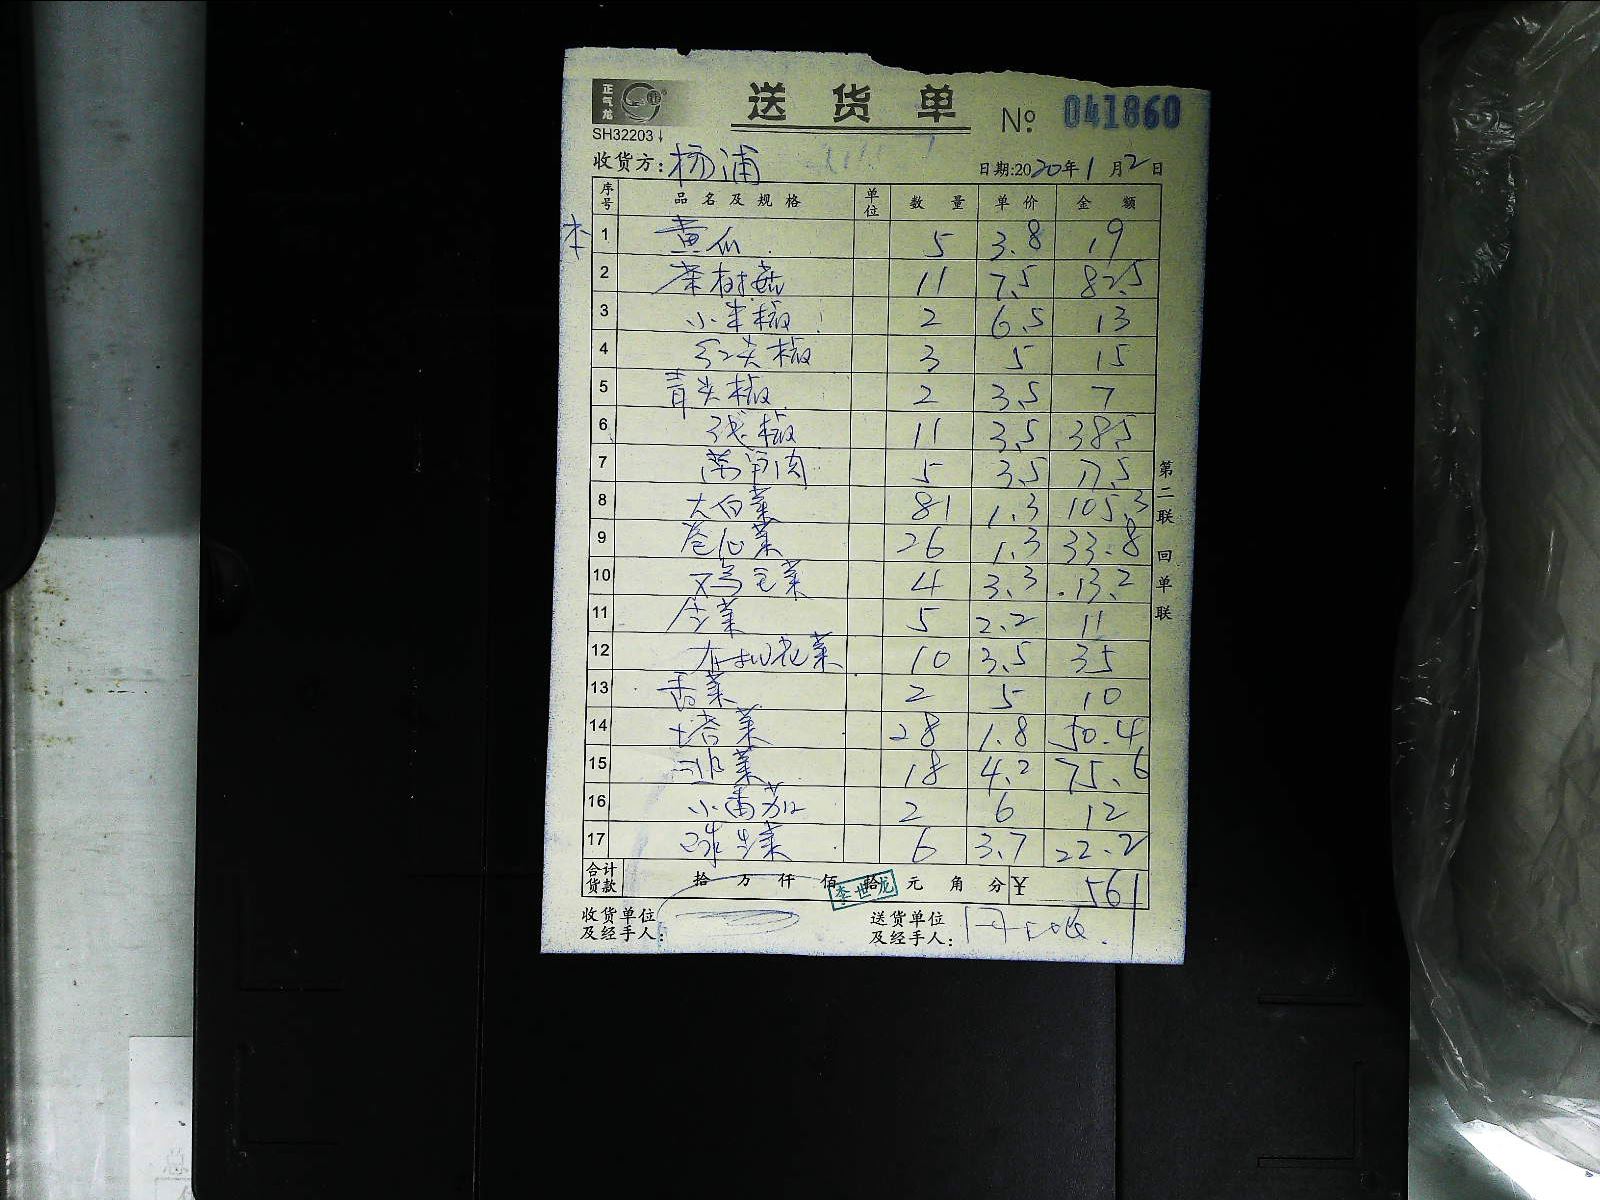 正气龙
送货单 № 041860
SH32203↓
收货方: 杨浦 日期:2020年1月2日
序号 品名及规格 单位 数量 单价 金额
本 1 黄瓜 5 3.8 19
2 茶树菇 11 7.5 82.5
3 小米椒 2 6.5 13
4 红尖椒 3 5 15
5 青尖椒 2 3.5 7
6 线椒 11 3.5 38.5
7 5 3.5 17.5
8 大白菜 81 1.3 105.3
9 卷心菜 26 1.3 33.8
10 鸡毛菜 4 3.3 13.2
11 菜 5 2.2 11
12 有机花菜 10 3.5 35
13 香菜 2 5 10
14 塔菜 28 1.8 50.4
15 菜 18 4.2 75.6
16 小番茄 2 6 12
17 球生菜 6 3.7 22.2
合计货款 拾 万 仟 佰 拾 元 角 分 ¥ 561
李世龙
收货单位及经手人: 送货单位及经手人:
第二联 回单联